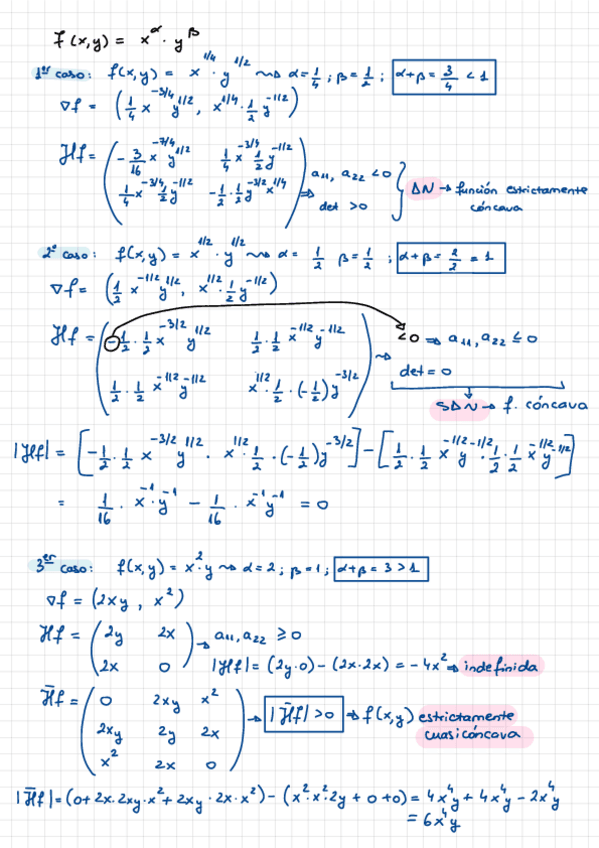 f(x,y) = x^α · y^β
1er caso: f(x,y) = x^1/4 · y^1/2 ⇝ α = 1/4 ; β = 1/2 ; α+β = 3/4 < 1
∇f = (1/4 x^-3/4 y^1/2, x^1/4 · 1/2 y^-1/2)
Hf = ( -3/16 x^-7/4 y^1/2    1/4 x^-3/4 1/2 y^-1/2 ) a₁₁, a₂₂ < 0
( 1/4 x^-3/4 · 1/2 y^-1/2    -1/2 · 1/2 y^-3/2 x^1/4 ) ⇒ det > 0 } ΔN → función estrictamente cóncava
2º caso: f(x,y) = x^1/2 · y^1/2 ⇝ α = 1/2 β = 1/2 ; α+β = 2/2 = 1
∇f = (1/2 x^-1/2 y^1/2, x^1/2 · 1/2 y^-1/2)
Hf = ( -1/2 · 1/2 x^-3/2 y^1/2    1/2 · 1/2 x^-1/2 y^-1/2 ) <0 ⇒ a₁₁, a₂₂ ≤ 0
( 1/2 · 1/2 x^-1/2 y^-1/2    x^1/2 · 1/2 · (-1/2) y^-3/2 ) det = 0
SΔN → f. cóncava
|Hf| = [-1/2 · 1/2 x^-3/2 y^1/2 · x^1/2 · 1/2 · (-1/2) y^-3/2] - [1/2 · 1/2 x^-1/2 y^-1/2 · 1/2 · 1/2 x^-1/2 y^-1/2]
= 1/16 · x^-1 · y^-1 - 1/16 · x^-1 y^-1 = 0
3er caso: f(x,y) = x² · y ⇝ α = 2 ; β = 1 ; α+β = 3 > 1
∇f = (2xy , x²)
Hf = ( 2y    2x ) → a₁₁, a₂₂ ≥ 0
( 2x    0 ) |Hf| = (2y·0) - (2x·2x) = -4x² ⇒ indefinida
H̄f = ( 0    2xy    x² )
( 2xy    2y    2x ) → |H̄f| > 0 ⇒ f(x,y) estrictamente cuasicóncava
( x²    2x    0 )
|H̄f| = (0 + 2x·2xy·x² + 2xy·2x·x²) - (x²·x²·2y + 0 + 0) = 4x⁴y + 4x⁴y - 2x⁴y
= 6x⁴y